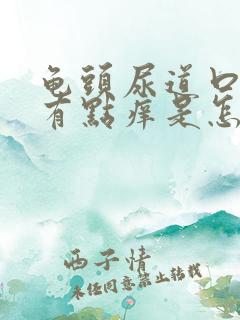 龟頭尿道口
有點痒是怎
西子情
未经同意禁止转载